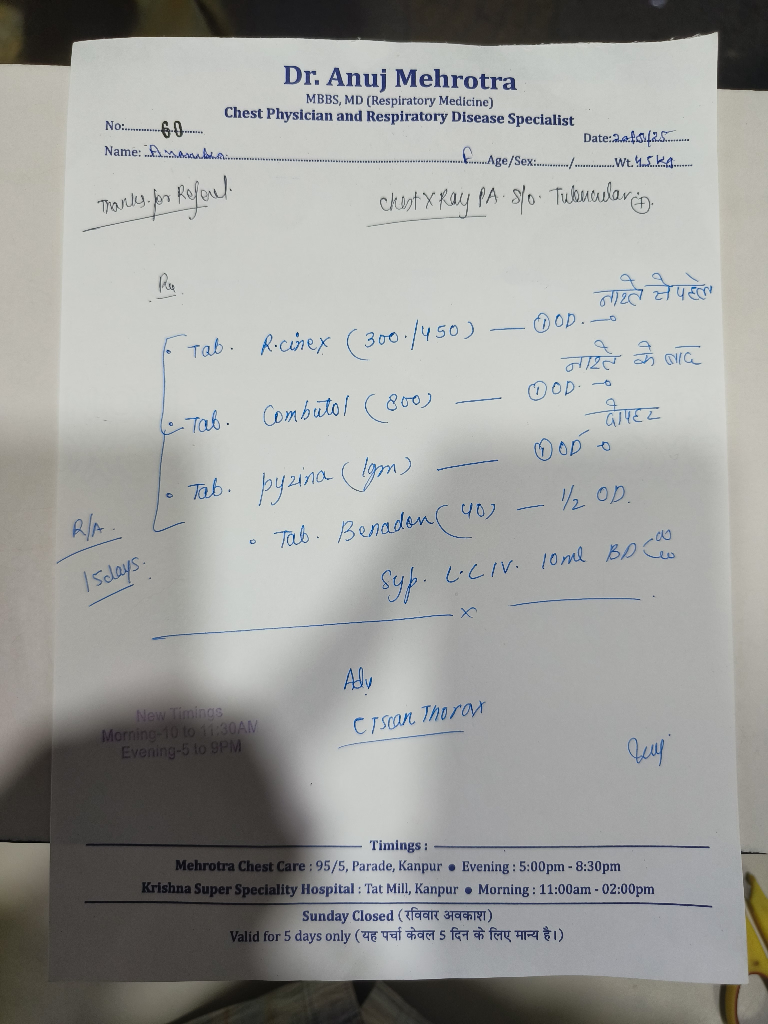 Dr. Anuj Mehrotra
MBBS, MD (Respiratory Medicine)
Chest Physician and Respiratory Disease Specialist
No:.......60.......
Date:
Name: Age/Sex:......../........ Wt. 45 Kg
Thanks for Referral.
Chest X Ray PA. S/o. Tubercular (+).
Rx
नाश्ते से पहले
Tab. R.cinex (300/450) — (1) OD.
नाश्ते के बाद
Tab. Combutol (800) — (1) OD.
दोपहर
Tab. pyzina (1gm) — (1) OD
Tab. Benadon (40) — 1/2 OD.
R/A.
15days.
Syp. L.C IV. 10ml BD
x
Adv
CT scan Thorax
New Timings
Morning-10 to 11:30AM
Evening-5 to 9PM
Timings :
Mehrotra Chest Care : 95/5, Parade, Kanpur ● Evening : 5:00pm - 8:30pm
Krishna Super Speciality Hospital : Tat Mill, Kanpur ● Morning : 11:00am - 02:00pm
Sunday Closed (रविवार अवकाश)
Valid for 5 days only (यह पर्चा केवल 5 दिन के लिए मान्य है।)